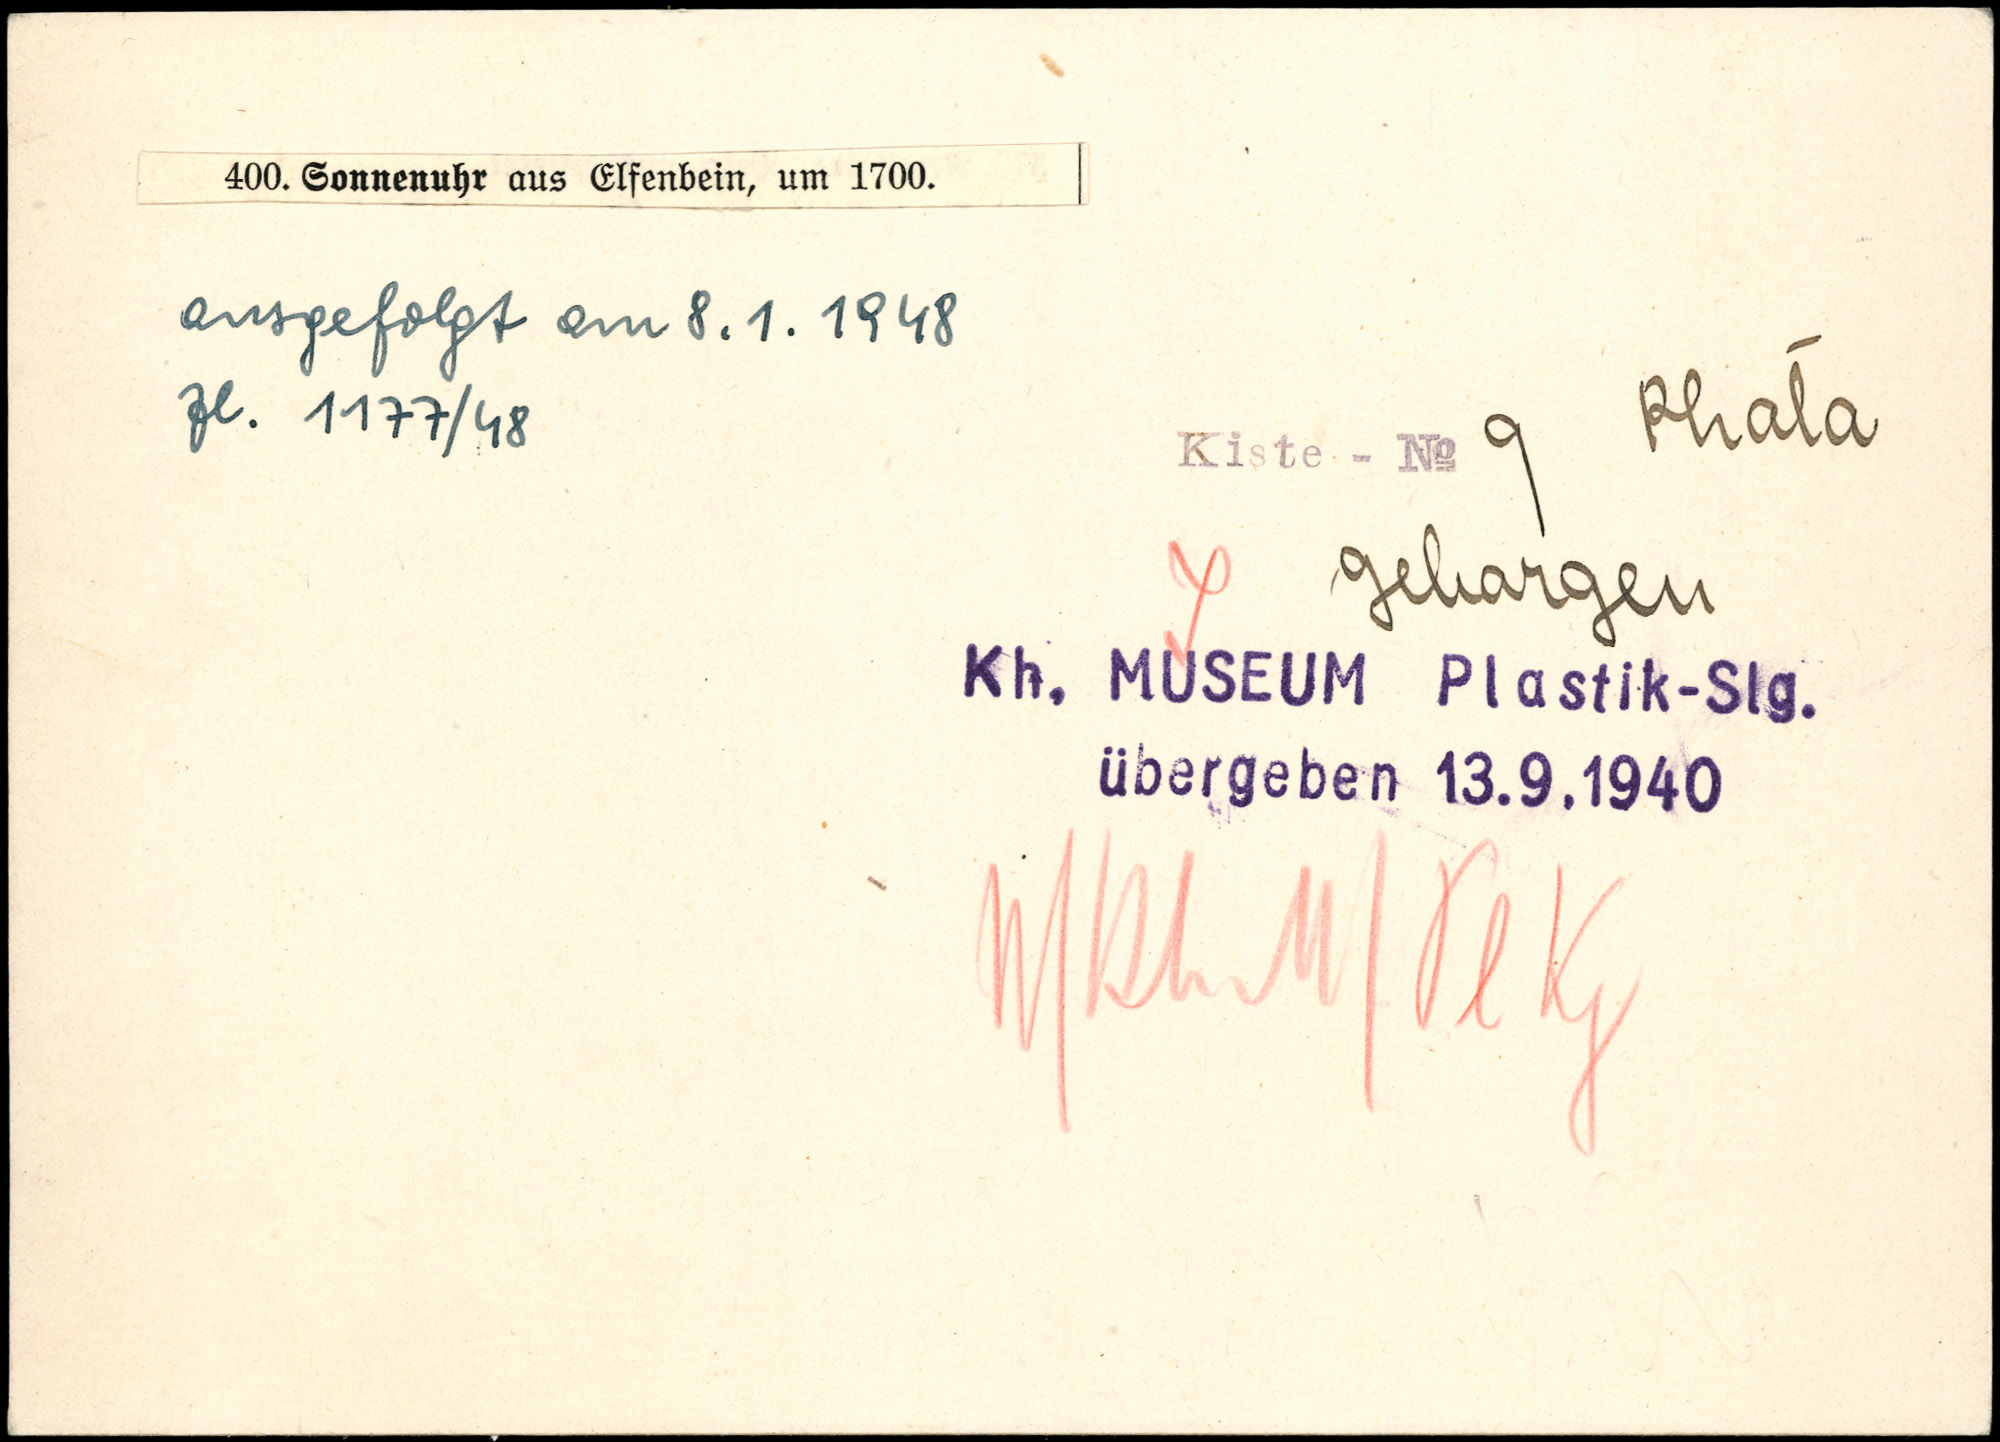 400. Sonnenuhr aus Elfenbein, um 1700.
ausgefolgt am 8.1.1948
Zl. 1177/48
Kiste - № 9 Khala
geborgen
Kh. MUSEUM Plastik-Slg.
übergeben 13.9.1940